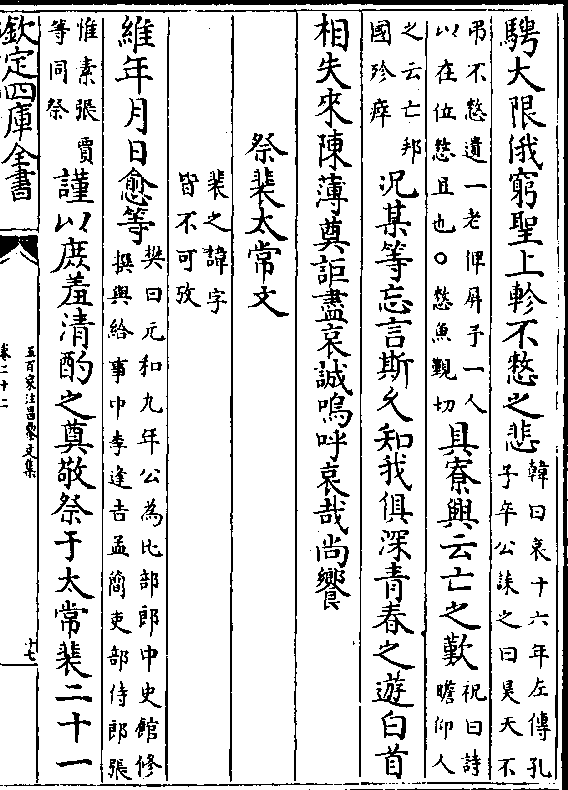 騁大限俄窮聖上軫不憖之悲韓曰哀十六年左傳孔子卒公誄之曰旻天不
弔不憖遺一老俾屏予一人以在位憖且也○憖魚覲切具寮興云亡之歎祝曰詩瞻仰人
之云亡邦國殄瘁況某等忘言斯久知我俱深青春之遊白首
相失來陳薄奠詎盡哀誠嗚呼哀哉尚饗
祭裴太常文裴之諱字皆不可攷
維年月日愈等樊曰元和九年公為比部郎中史館修撰與給事中李逢吉孟簡吏部侍郎張
惟素張賈等同祭謹以庶羞清酌之奠敬祭于太常裴二十一
欽定四庫全書
五百家注昌黎文集
卷二十二
十七